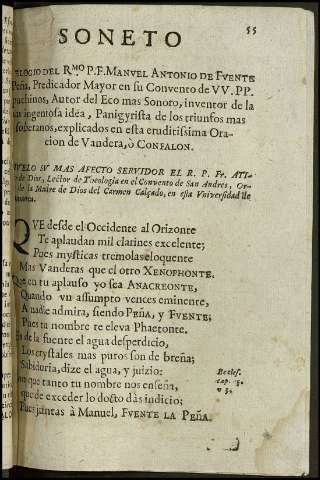 55
SONETO
ELOGIO DEL R.MO P.F. MANVEL ANTONIO DE FVENTE
Peña, Predicador Mayor en su Convento de VV. PP.
puchinos, Autor del Eco mas Sonoro, inventor de la
ingeniosa idea, Panigyrista de los triunfos mas
soberanos, explicados en esta eruditissima Ora-
cion de Vandera, ò CONFALON.
SV MAS AFECTO SERVIDOR EL R. P. Fr.
de Dios, Lector de Theologia en el Convento de San Andres, Or-
de la Madre de Dios del Carmen Calçado, en esta Vniversidad de
QVE desde el Occidente al Orizonte
Te aplaudan mil clarines excelente;
Pues mysticas tremolas eloquente
Mas Vanderas que el otro XENOPHONTE.
Que en tu aplauso yo sea ANACREONTE,
Quando vn assumpto vences eminente,
A nadie admira, siendo PEÑA, y FVENTE;
Pues tu nombre te eleva Phaetonte.
de la fuente el agua desperdicio,
Los crystales mas puros son de breña;
Sabiduria, dize el agua, y juizio:
que tanto tu nombre nos enseña,
que de exceder lo docto dàs indicio;
Pues juntas à Manuel, FVENTE LA PEÑA.
Eccles.
cap. 15.
v 3.